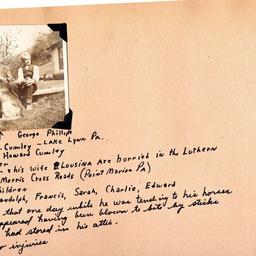 George Phillip
Cumley - LAKE Lynn Pa.
Howard Cumley
er
- & his wife LOUSINA are burried in the Luthern
Morris Cross Roads (Point Marion PA)
hildren
andolph, Francis, Sarah, Charlie, Edward
that one day while he was tending to his horses
appeared having been blown to bits by sticks
had stored in his attic.
o injuries